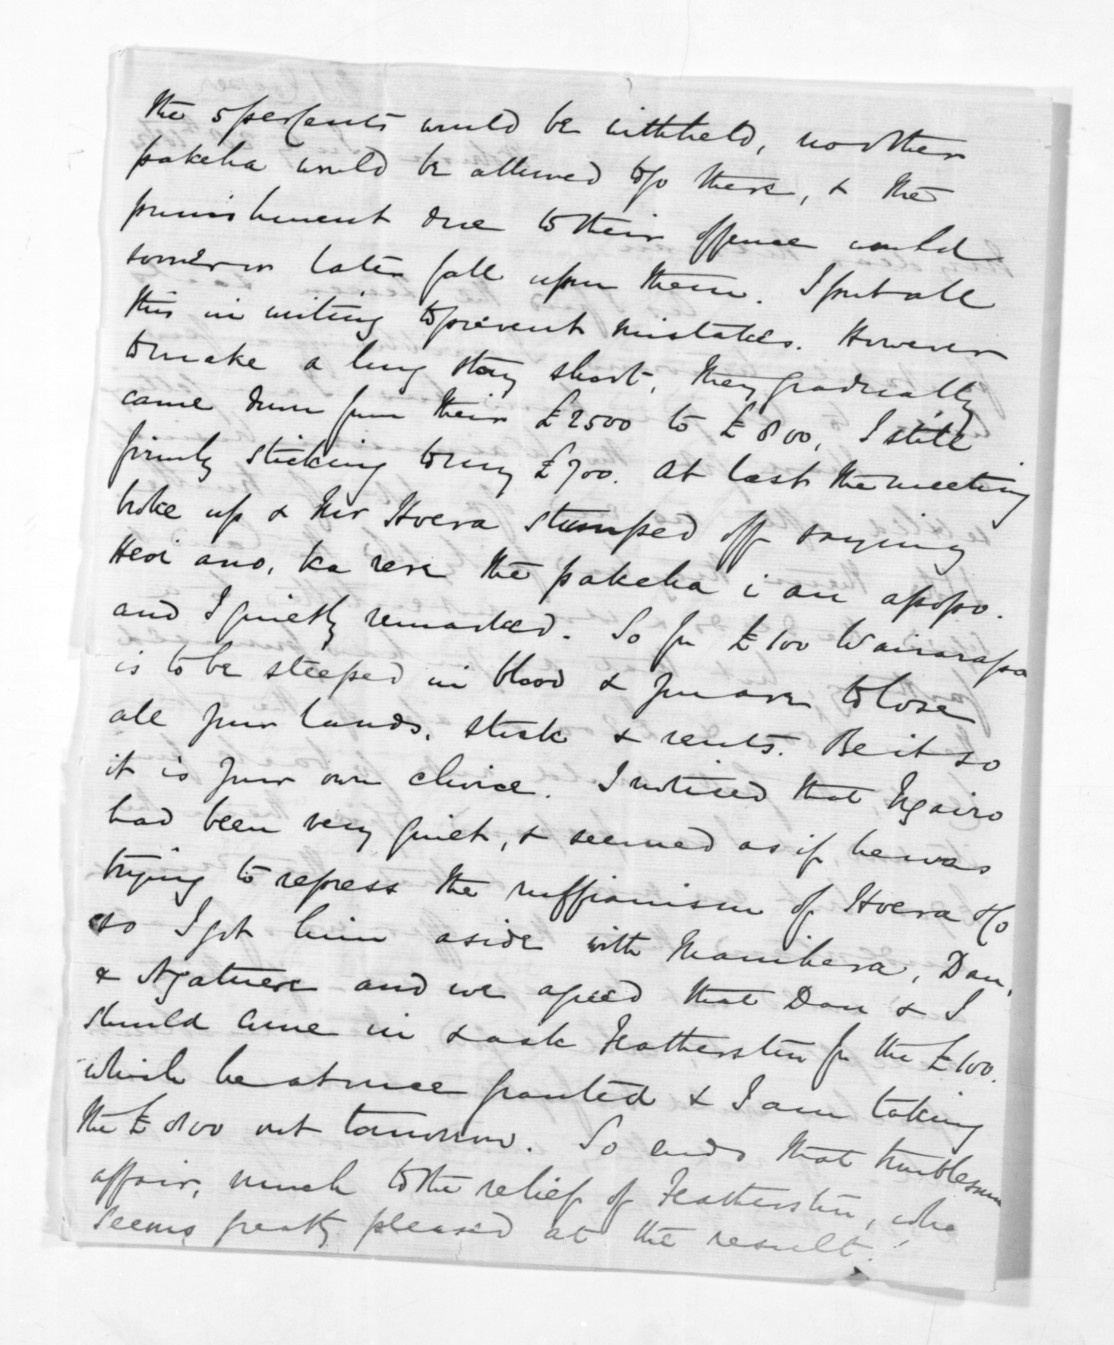 the 5 per Cents would be withheld, no other
pakeha would be allowed to go there, & the
punishment due to their offence would
sooner or later fall upon them. I put all
this in writing to prevent mistakes. However
to make a long story short, they gradually
came down from their £2500 to £800, I still
firmly sticking to my £700. At last the meeting
broke up & Mr Hoera stumped off saying
Heoi ano, ka rere the pakeha i au apopo.
and I quietly remarked. So for £100 Wairarapa
is to be steeped in blood & you are to lose
all your lands, stock & rents. Be it so
it is your own choice. I noticed that Ngairo
had been very quiet, & seemed as if he was
trying to repress the ruffianism of Hoera & Co
so I got him aside with Manihera, Dan,
& Ngatuere and we agreed that Dan & I
should come in & ask Featherston for the £100.
which he at once granted & I am taking
the £800 out tomorrow. So ends that troublesome
affair, much to the relief of Featherston, who
seems greatly pleased at the result!